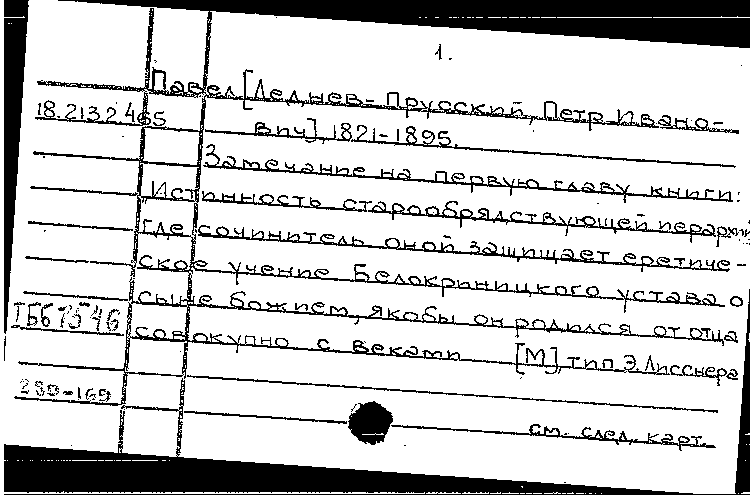 1.
Павел [Леднев-Прусский, Петр Ивано-
18.213.2.465
вич], 1821-1895.
Замечание на первую главу книги:
"Истинность старообрядствующей иерархии
где сочинитель оной защищает еретиче-
ское учение Белокриницкого устава о
сыне божием, якобы он родился от отца
совокупно с веками [М], тип Э. Лисснера
239-169
см. след. карт.